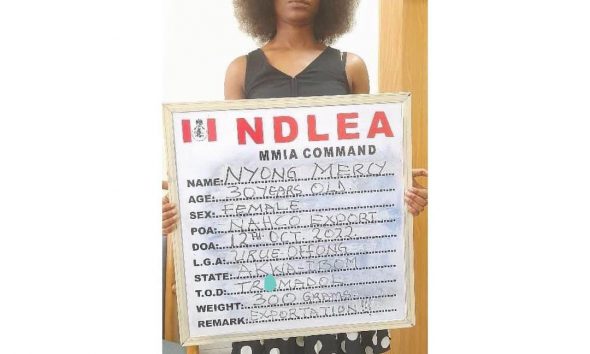 NDLEA
MMIA COMMAND
NAME: NYONG MERCY
AGE: 30 YEARS OLD
SEX: FEMALE
POA: NAHCO EXPORT
DOA: 12TH OCT. 2022
L.G.A: URUE OFFONG
STATE: AKWA-IBOM
T.O.D: TRAMADOL
WEIGHT: 300 GRAMS
REMARK: EXPORTATION!!!